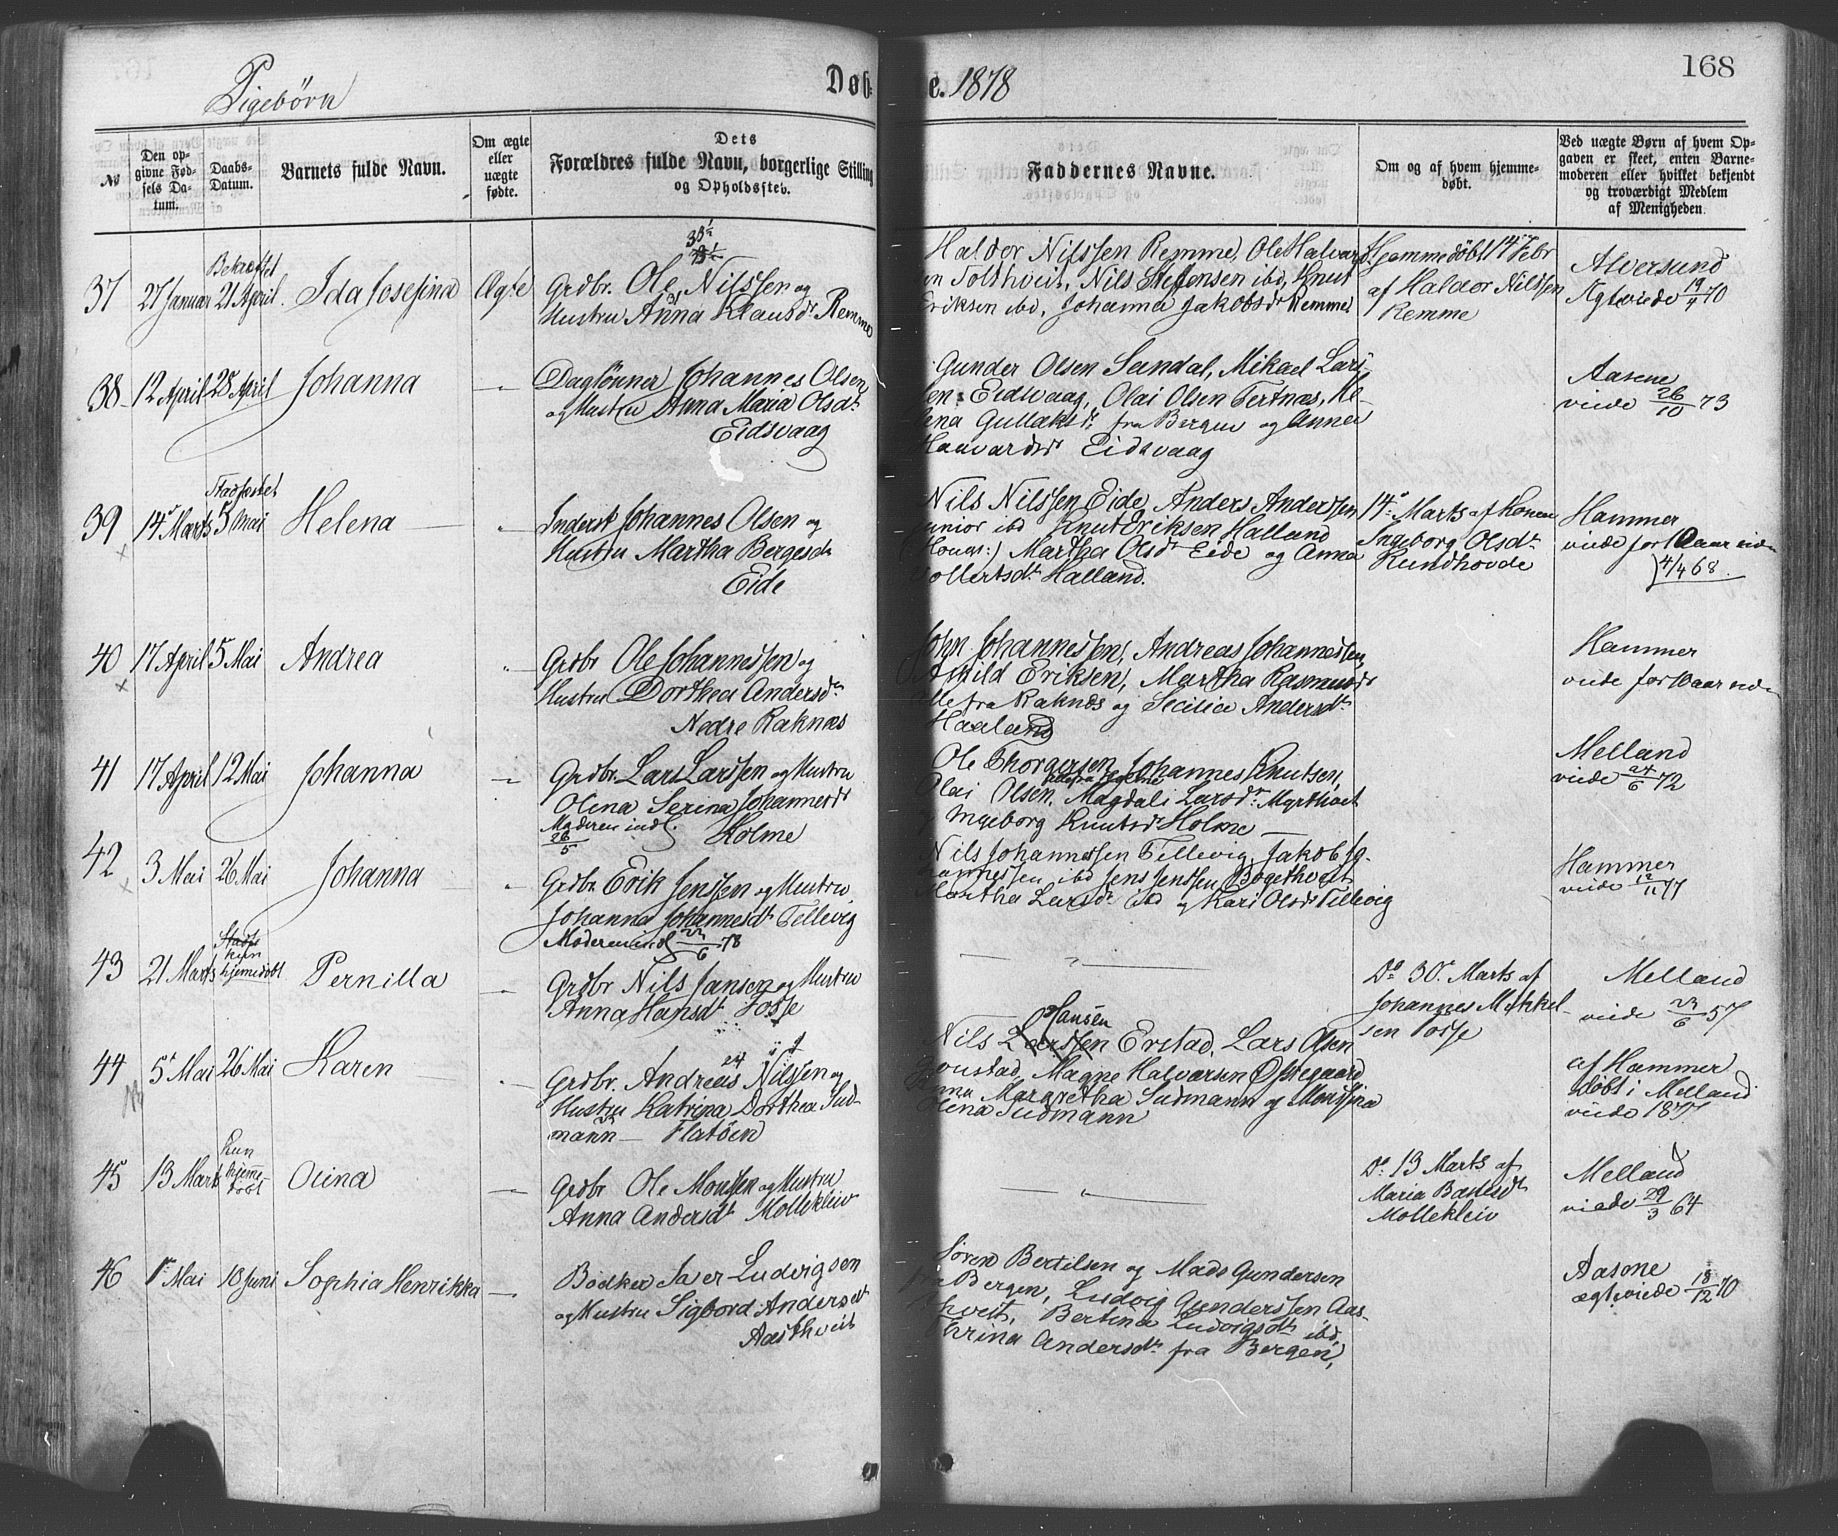 Pigebörn
Døbte. 1878
168
№
Den opgivne Fødsels Datum.
Daabs-Datum.
Barnets fulde Navn.
Om ægte eller uægte fødte.
Dets Forældres fulde Navn, borgerlige Stilling og Opholdssted.
Faddernes Navne.
Om og af hvem hjemmedøbt.
Ved uægte Børn af hvem Opgaven er skeet, enten Barnemoderen eller hvilket bekjendt og troværdigt Medlem af Menigheden.
37
27 Januar
Bekræftet
21 April
Ida Josefina
Ægte
Grdbr. Ole Nilssen og
Hustru Anna Klausdr Remme
Haldor Nilssen Remme, Ole Halvor
Tolthveit, Nils Steffensen ibd, Knut
Eriksen ibd, Johanna Jakobsdr Remme
Hjemmedöbt 14 Febr
af Haldor Nilssen
Remme
Alversund
Ægteviede 19/4 70
38
12 April
28 April
Johanna
Daglönner Johannes Olsen
og Hustru Anna Maria Olsdt
Eidsvaag
Gunder Olsen Sandal, Mikael Lari-
sen Eidsvaag, Olai Olsen Tertnæs, He-
lena Gullaksdr fra Bergen og Anna
Haavardsdr Eidsvaag
Aasene
viede 26/10 73
39
14 Marts
Stadfæstet
5 Mai
Helena
Inderst Johannes Olsen og
Hustru Martha Bergesdr
Eide
Nils Nilssen Eide, Anders Anderssen
junior ibd Knut Eriksen Halland
(Houg:) Martha Olsdt Eide og Anna
Vollertsdt Halland.
14 Marts af Konen
Ingeborg Olsdt
Rundhovde
Hammer
viede for 10 aar siden
4/4 68.
40
17 April
5 Mai
Andrea
Grdbr Ole Johannessen og
Hustru Dorthea Andersdr
Nedre Raknæs
John Johannessen, Andreas Johannessen,
Eriksen, Martha Rasmusdr
alle fra Raknæs og Secilia Andersdt
Haaland
Hammer
viede for 10 aar siden
41
17 April
12 Mai
Johanna
Grdbr. Lars Larssen og Hustru
Olina Serina Johannesdt
Moderen indl. 26/5
Holme
Ole Thorgersen, Johannes Knutsen,
Olai Olsen, Magdali Larsdr Myrthvet
Ingeborg Knutsdr Holme
Melland
viede 24/6 72
42
3 Mai
26 Mai
Johanna
Grdbr. Erik Jenssen og Hustru
Johanna Johannesdt Tellevig
Moderen indl 23/6 78
Nils Johannessen Tellevig, Jakob Jo-
hannessen ibd Jens Jenssen Bogethveit
Martha Larsdr ibd og Kari Olsdr Tellevig
Hammer
viede 12/11 77
43
21 Marts
kun
hjemedøbt
Pernilla
Grdbr Nils Jansen og Hustru
Anna Hansdt Fosse
Do 30 Marts af
Johannes Mikkel-
sen Fosse
Melland
viede 23/6 57
44
5 Mai
26 Mai
Karen
Grdbr. Andreas Nilssen og
Hustru Katrina Dorthea Sud-
mann - Flatöen
Hansen
Nils Larssen Erstad, Lars Olsen
Magne Halvorsen Østegaard
Anna Margretha Sudmann og Monsina
Olena Sudmann
af Hammer
döbt i Melland
viede 1877
45
13 Marts
Kun
hjemme
döbt
Olina
Grdbr Ole Monssen og Hustru
Anna Andersdt Mollekleiv
Do 13 Marts af
Maria
Mollekleiv
Melland
viede 29/3 64
46
1 Mai
10 Juni
Sophia Henrikka
Bödker Saer Ludvigsen
og Hustru Sigbord Andersdt
Aasthveit
Sören Bertilsen og Mads Gundersen
fra Bergen, Ludvig Gunderssen Aas-
thveit, Bertina Ludvigsdt ibd,
Andersdt fra Bergen,
Aasene
ægteviede 18/12 70